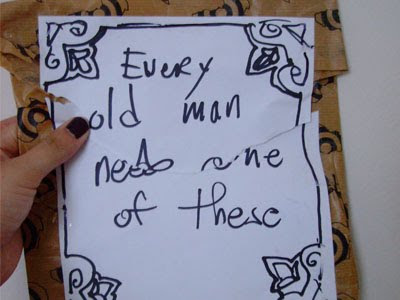 Every
old man
needs one
of these